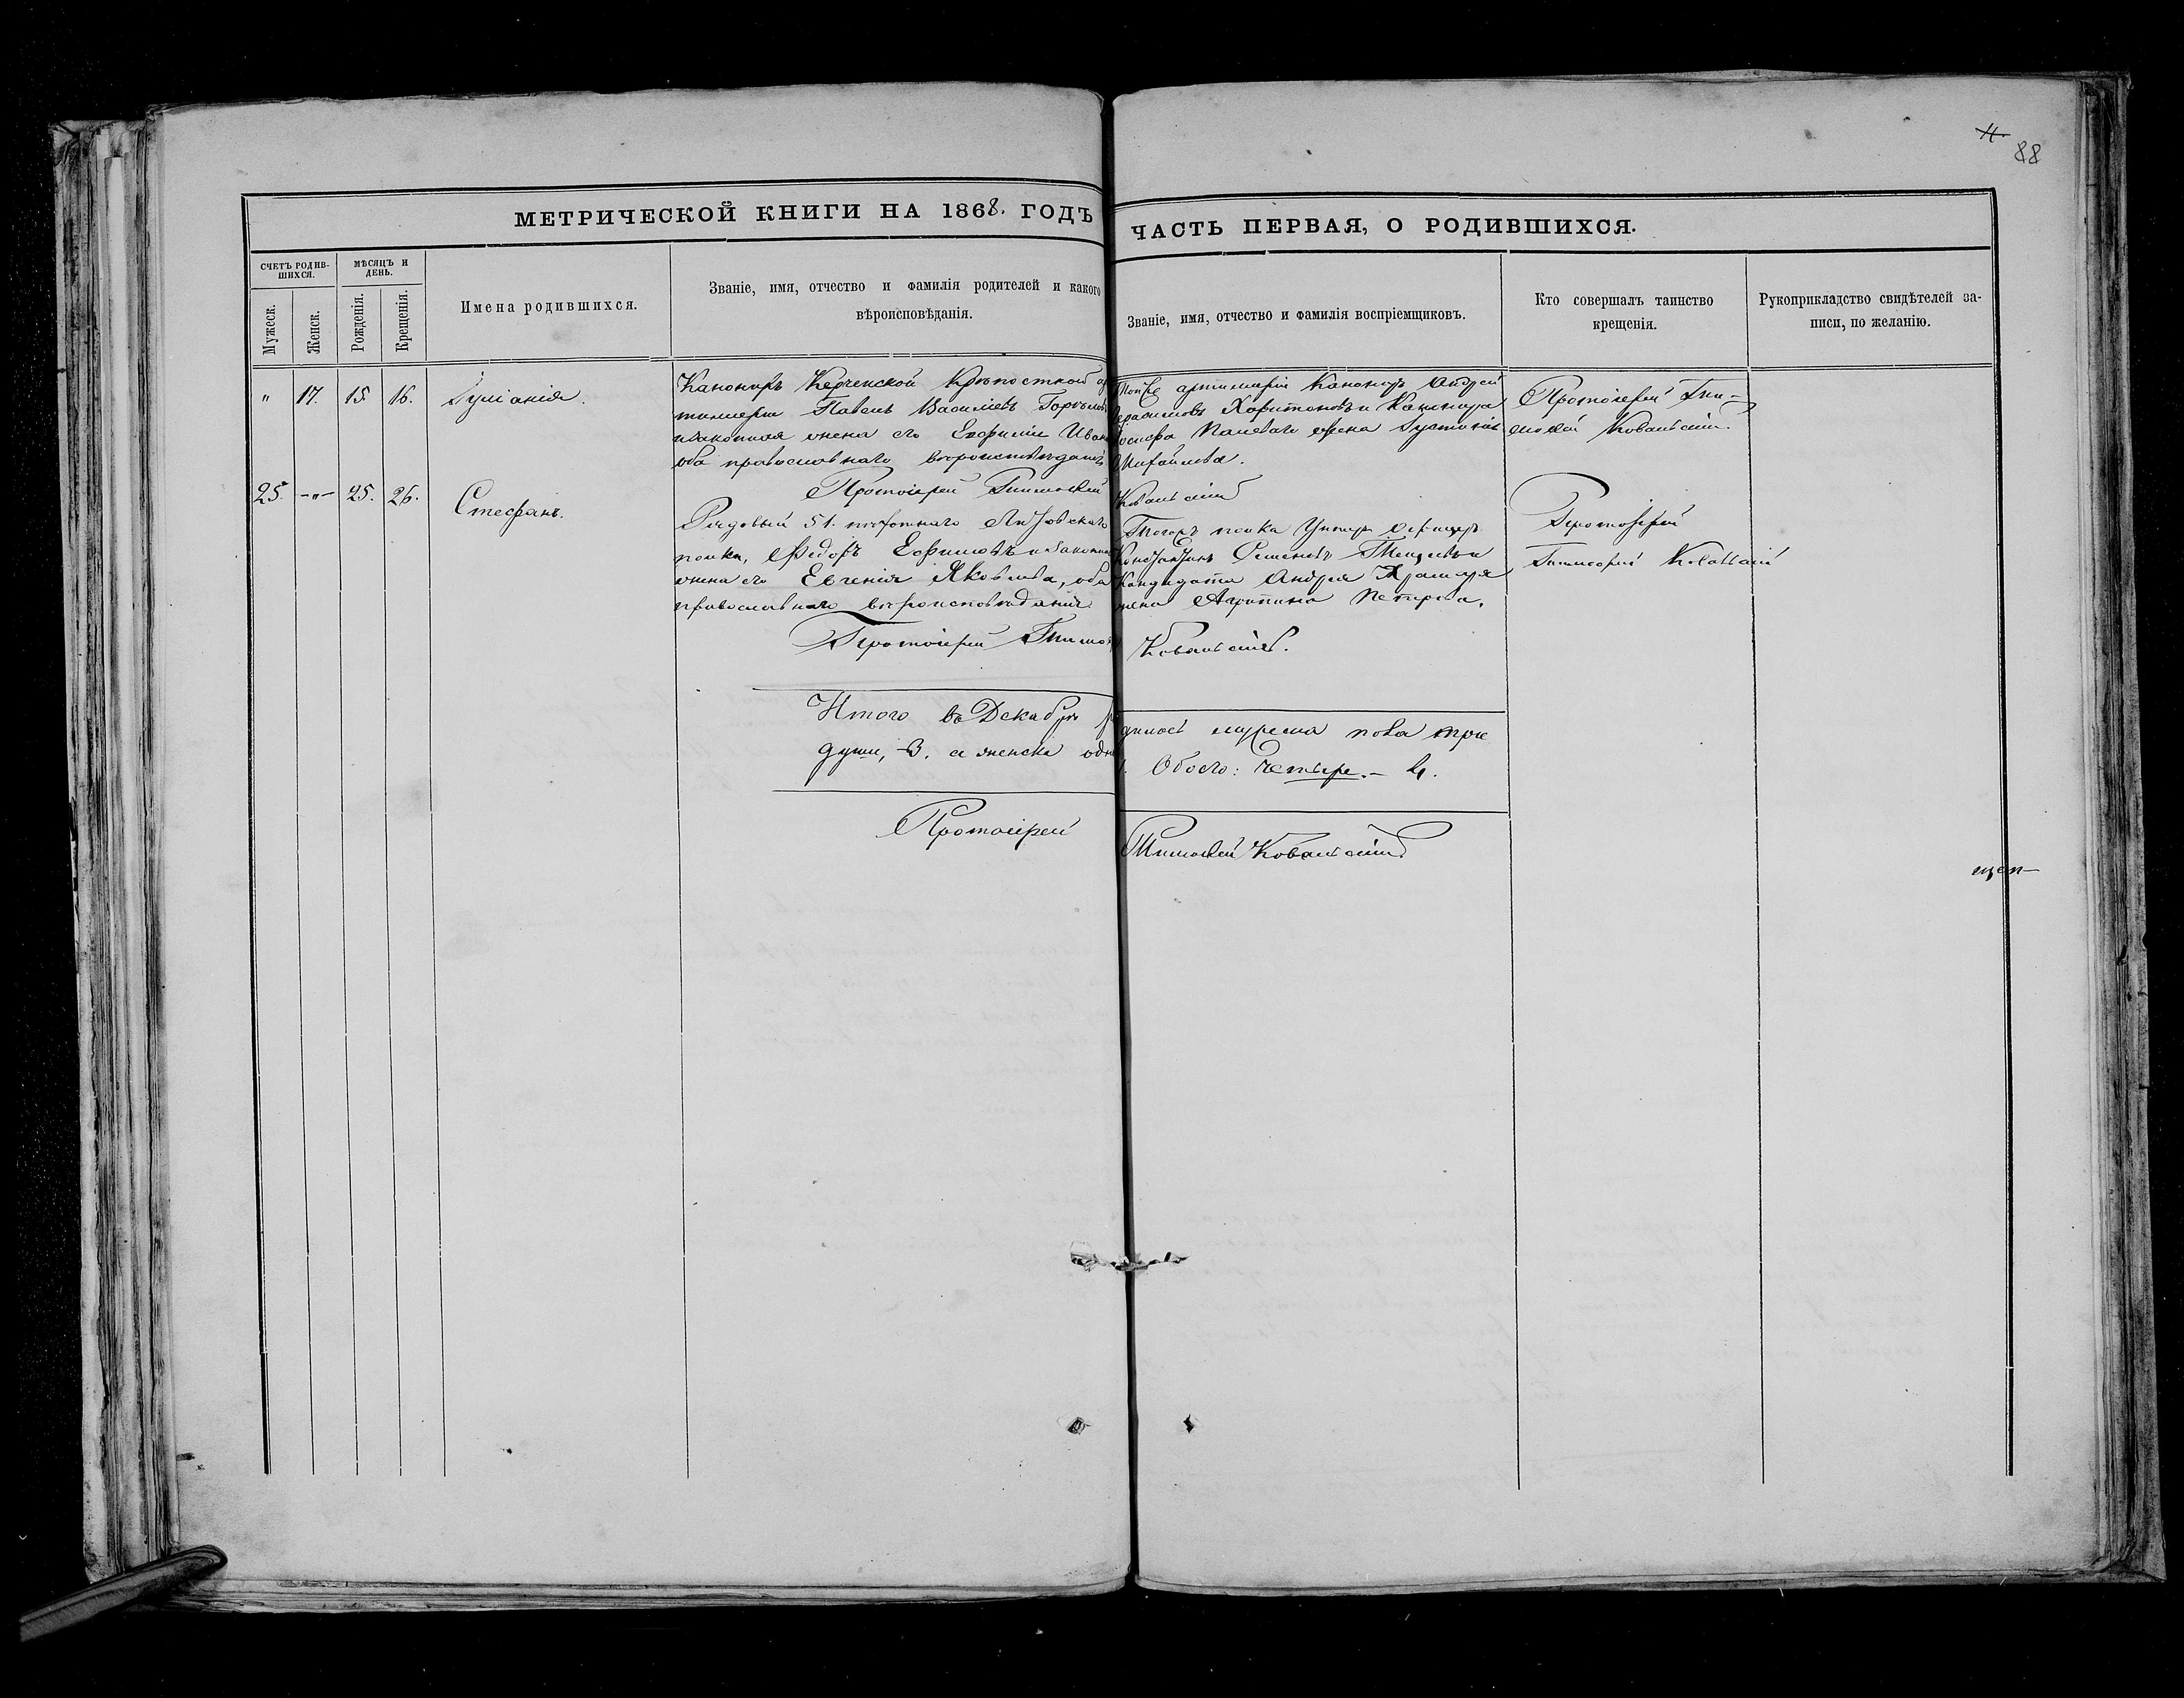 88
МЕТРИЧЕСКОЙ КНИГИ НА 1868. ГОДЪ
ЧАСТЬ ПЕРВАЯ, О РОДИВШИХСЯ.
СЧЕТЪ РОДИВ-
ШИХСЯ.
МѢСЯЦЪ И
ДЕНЬ.
Мужеск.
Женск.
Рожденія.
Крещенія.
Имена родившихся.
Званіе, имя, отчество и фамилія родителей и какого
вѣроисповѣданія.
Званіе, имя, отчество и фамилія воспріемщиковъ.
Кто совершалъ таинство
крещенія.
Рукоприкладство свидѣтелей за-
писи, по желанію.
" 17. 15. 16. Іуліанія.
Канониръ Керченской Крѣпостной ар
тиллеріи Павелъ Васильевъ
и законная жена его Евфимія Иван
оба православнаго вѣроисповѣданія
Протоіерей Тимоѳей
артиллеріи Канониръ Андрей
Харитоновъ и Канонира
жена Іустинія
Михайлова.
Ковальскій
Протоіерей Тим-
оѳей Ковальскій
25. -"- 25. 26. Стефанъ.
Рядовый 51. пѣхотнаго Литовскаго
полка, Ѳедоръ Ефимовъ и законная
жена его Евгенія Яковлева, оба
православнаго вѣроисповѣданія
Протоіерей Тимоѳ
Тогожъ полка Унтеръ Офицеръ
Константинъ Семеновъ и
Кандидата Андрея
жена Агрипина Петрова.
Ковальскій.
Протоіерей
Тимоѳей Ковальскій
Итого въ Декабрѣ ро
души, -3. а женска одна
дилось мужеска пола три
Обоего: Четыре. - 4.
Протоіерей
Тимоѳей Ковальскій